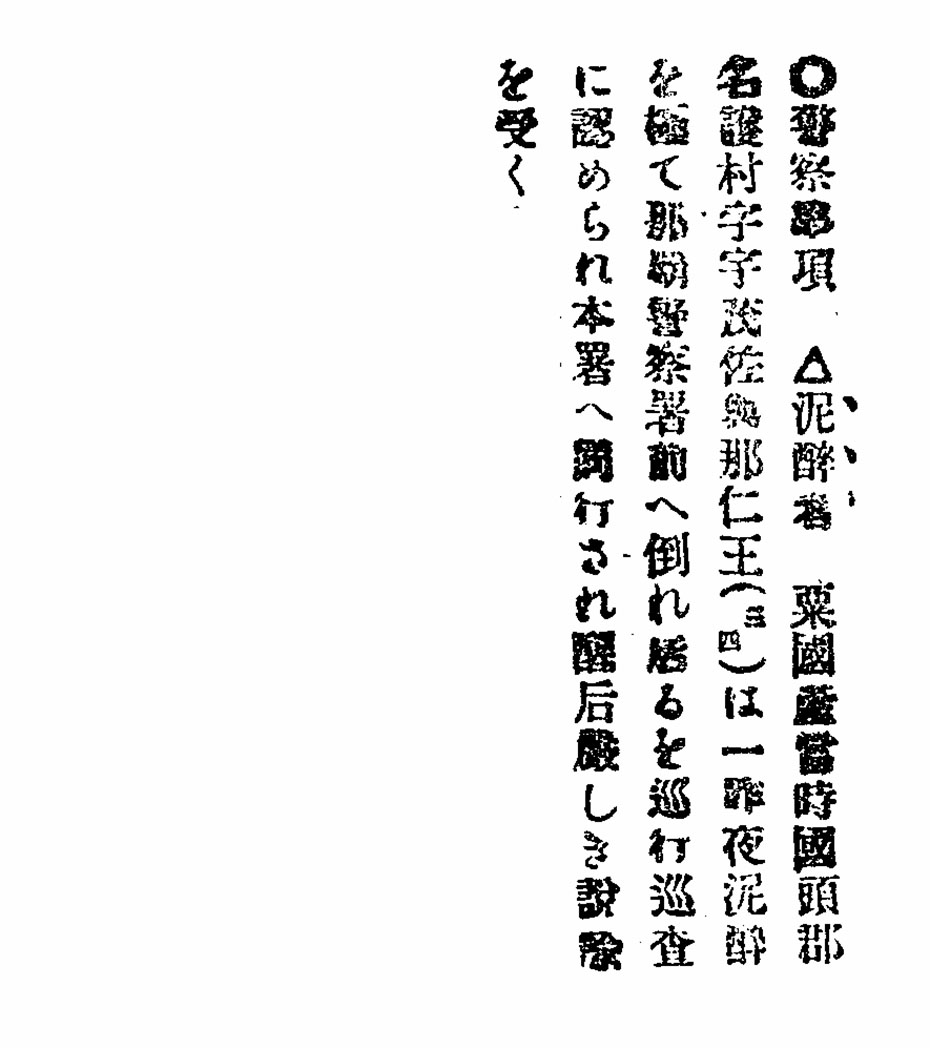 ◯警察事項　△泥醉者　粟國嶋當時國頭郡
名護村字宇茂佐與那仁王(三四)は一昨夜泥醉
を極て那覇警察署前へ倒れ居るを巡行巡査
に認められ本署へ同行され醒后嚴しき說諭
を受く